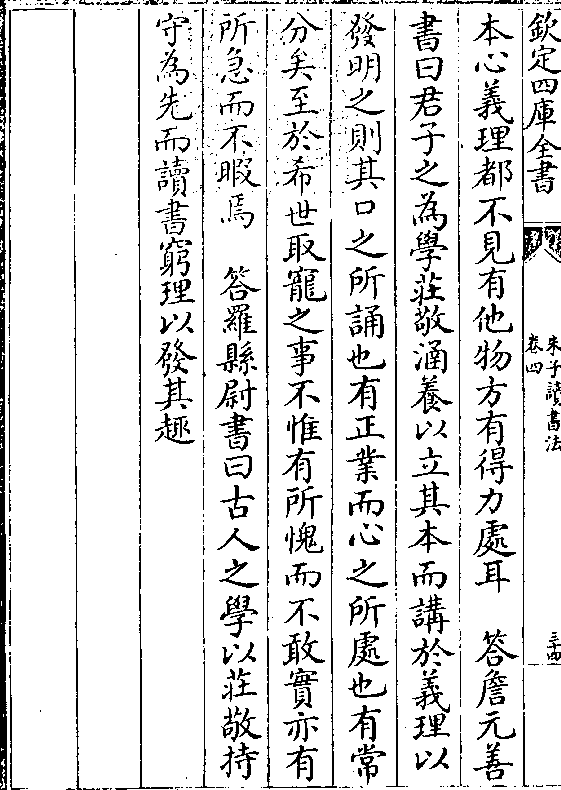 欽定四庫全書
朱子讀書法
卷四
三十四
本心義理都不見有他物方有得力處耳　答詹元善
書曰君子之為學莊敬涵養以立其本而講於義理以
發明之則其口之所誦也有正業而心之所處也有常
分矣至於希世取寵之事不惟有所愧而不敢實亦有
所急而不暇焉　答羅縣尉書曰古人之學以莊敬持
守為先而讀書窮理以發其趣